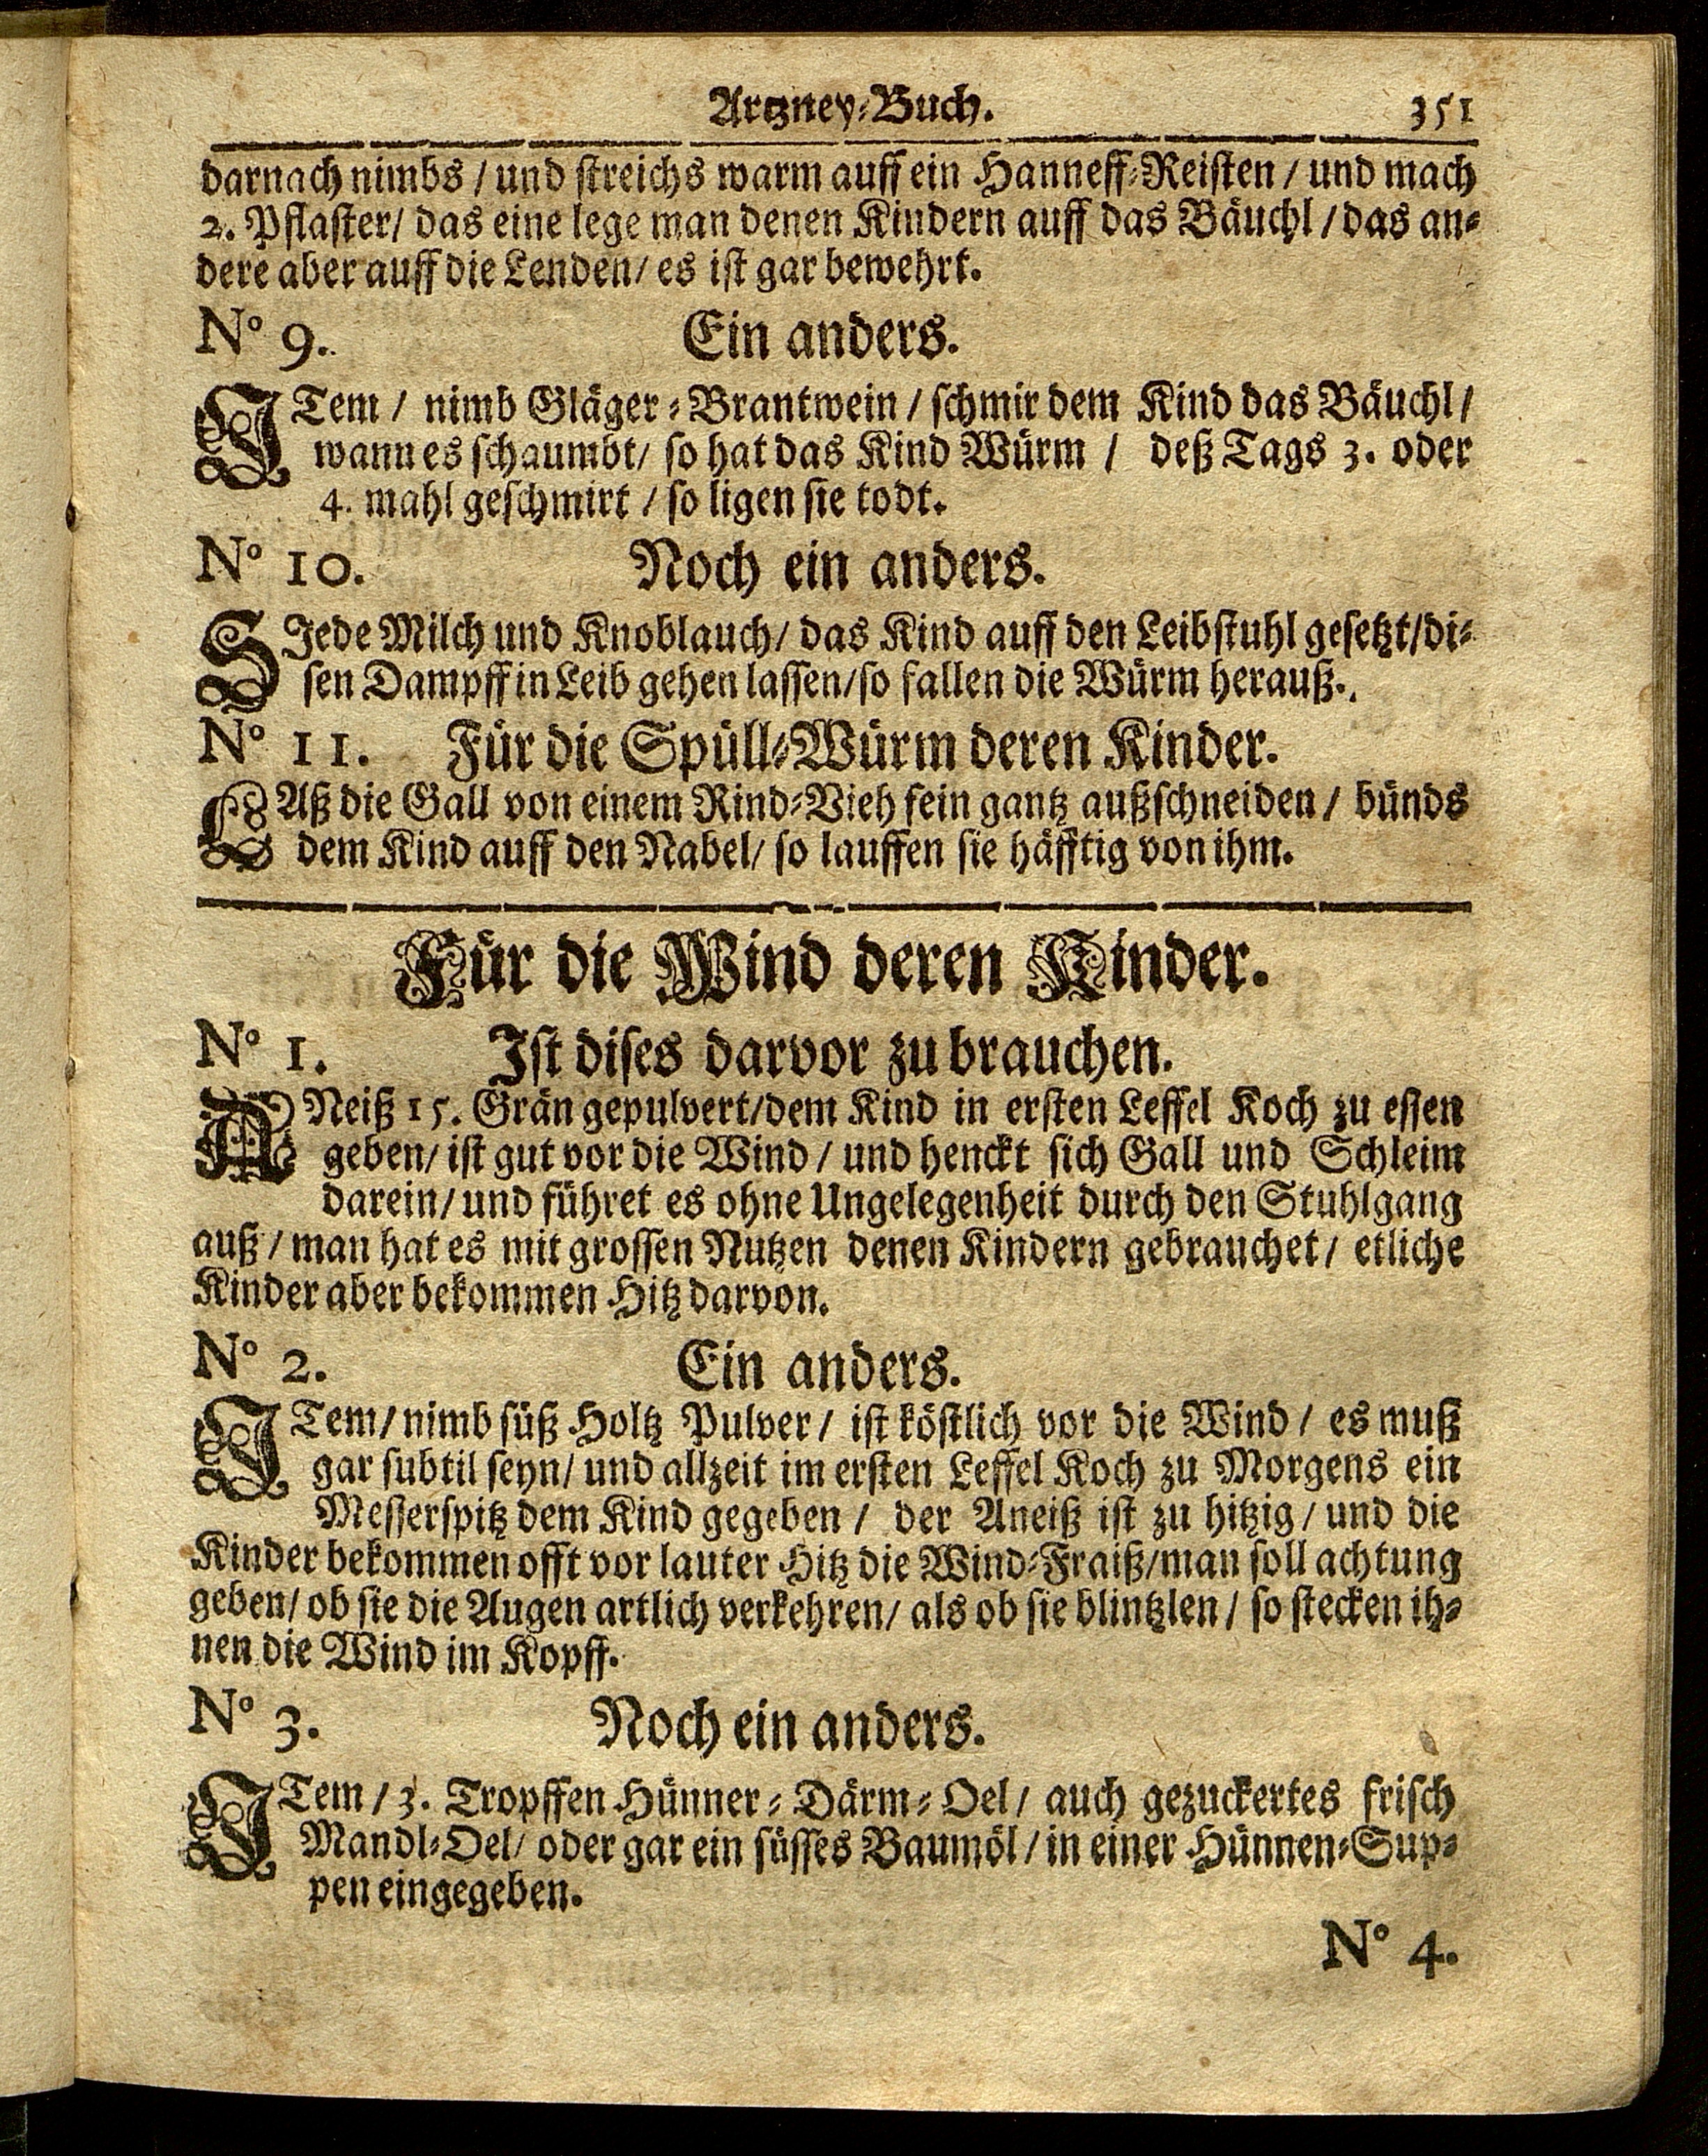 Artzney-Buch. 351
darnach nimbs / und streichs warm auff ein Hanneff-Reisten / und mach
2. Pflaster/ das eine lege man denen Kindern auff das Bäuchl / das an-
dere aber auff die Lenden/ es ist gar bewehrt.
No 9. Ein anders.
ITem / nimb Gläger-Brantwein / schmir dem Kind das Bäuchl /
wann es schaumbt/ so hat das Kind Würm / deß Tags 3. oder
4. mahl geschmirt / so ligen sie todt.
No 10. Noch ein anders.
SIede Milch und Knoblauch/ das Kind auff den Leibstuhl gesetzt/di-
sen Dampff in Leib gehen lassen/so fallen die Würm herauß.
No 11. Für die Spüll-Würm deren Kinder.
LAß die Gall von einem Rind-Vieh fein gantz außschneiden / bünds
dem Kind auff den Nabel/ so lauffen sie häfftig von ihm.
Für die Wind deren Kinder.
No 1. Ist dises darvor zu brauchen.
ANeiß 15. Grän gepulvert/dem Kind in ersten Leffel Koch zu essen
geben/ ist gut vor die Wind / und henckt sich Gall und Schleim
darein/ und führet es ohne Ungelegenheit durch den Stuhlgang
auß / man hat es mit grossen Nutzen denen Kindern gebrauchet / etliche
Kinder aber bekommen Hitz darvon.
No 2. Ein anders.
ITem/ nimb süß Holtz Pulver / ist köstlich vor die Wind / es muß
gar subtil seyn/ und allzeit im ersten Leffel Koch zu Morgens ein
Messerspitz dem Kind gegeben / der Aneiß ist zu hitzig / und die
Kinder bekommen offt vor lauter Hitz die Wind-Fraiß/man soll achtung
geben/ ob sie die Augen artlich verkehren/ als ob sie blintzlen / so stecken ih-
nen die Wind im Kopff.
No 3. Noch ein anders.
ITem / 3. Tropffen Hünner-Därm-Oel / auch gezuckertes frisch
Mandl-Oel/ oder gar ein süsses Baumöl / in einer Hünnen-Sup-
pen eingegeben.
No 4.